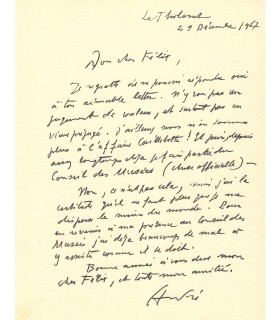 Le Tholonet
29 Décembre 1967
Mon cher Félix,
Je regrette de ne pouvoir répondre oui
à ton aimable lettre. N'y vois pas un
jugement de valeur, et surtout pas un
vieux préjugé. J'ailleurs nous n'en sommes
plus à l'affaire Caillebotte ! Et puis, depuis
assez longtemps déjà je fais partie du
Conseil des Musées (chose officielle) —
Non, ce n'est pas cela, mais j'ai la
certitude qu'il ne faut plus que je me
disperse le moins du monde. Pour
en revenir à ma présence au Conseil des
Musées j'ai déjà beaucoup de mal à
y assister comme il se doit.
Bonne année à vous deux mon
cher Félix, et toute mon amitié.
André